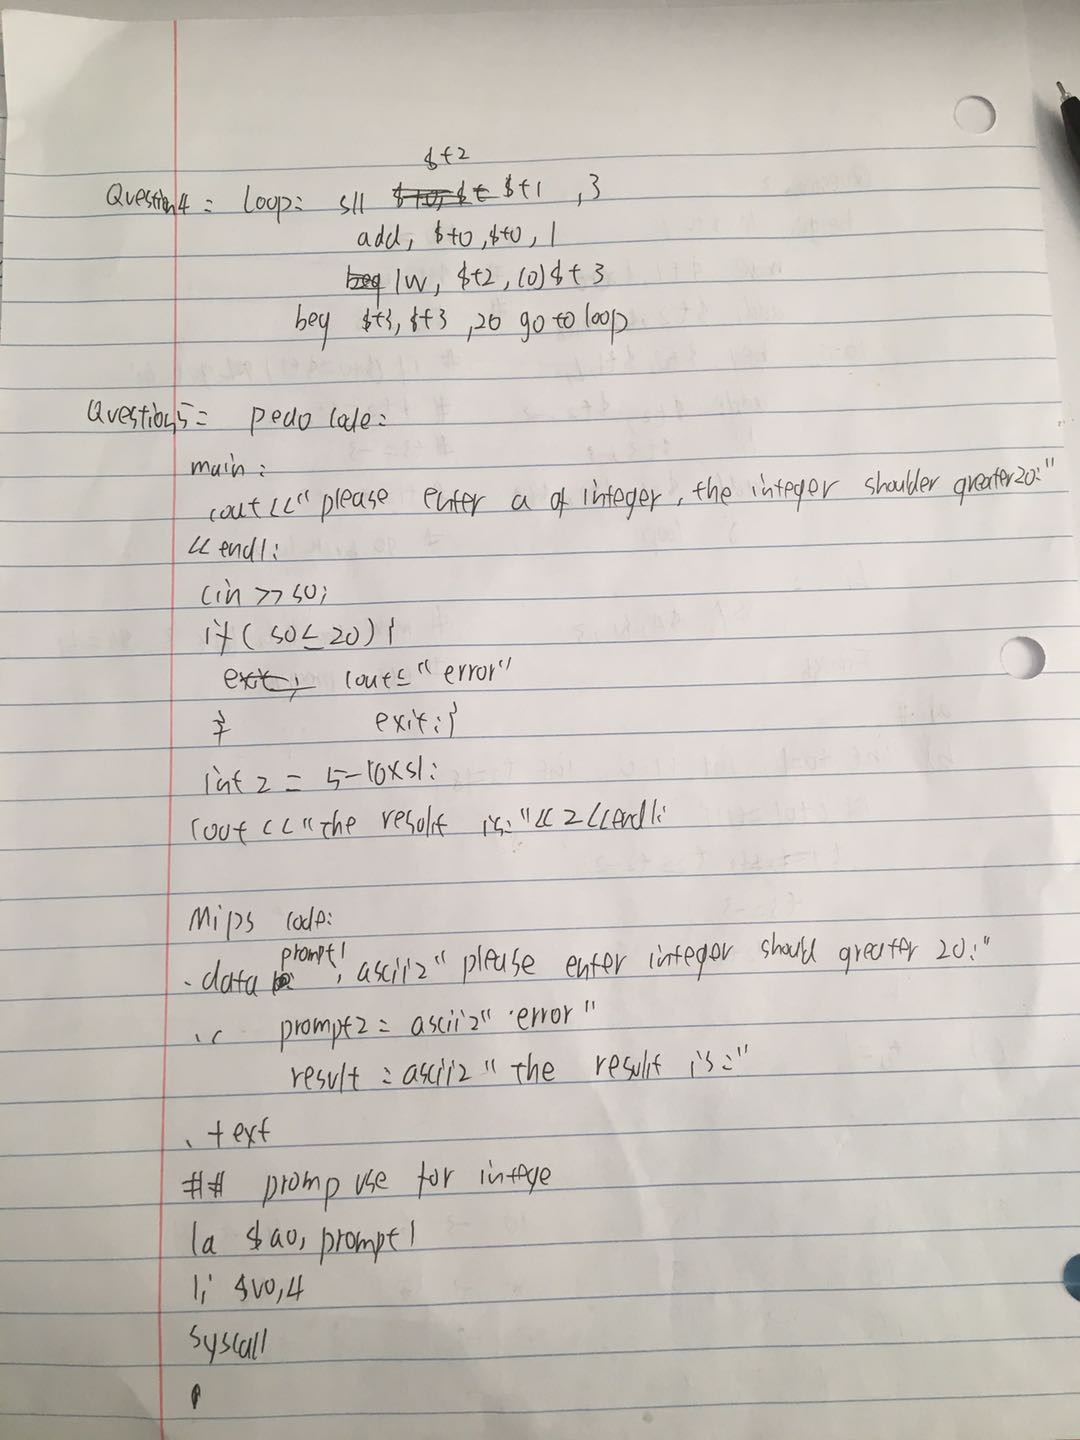 $t2
Question4: loop: sll $t1 ,3
add, $t0 ,$t0 , 1
lw, $t2, (0)$t3
beq $t3, $t3 ,20 go to loop
Question5: Pedo code:
main:
cout<<"please enter a of integer, the integer shoulder greater20:"
<<endl;
cin>>s0;
if( s0≤20){
cout≤"error"
} exit;}
int z = 5-10xs1;
cout<<"the result is:"<<z<<endl;
Mips code:
prompt1
.data : asciiz" please enter integer should greater 20:"
prompt2: asciiz" error"
result : asciiz" the result is:"
.text
## promp use for intege
la $a0, prompt1
li $v0,4
syscall